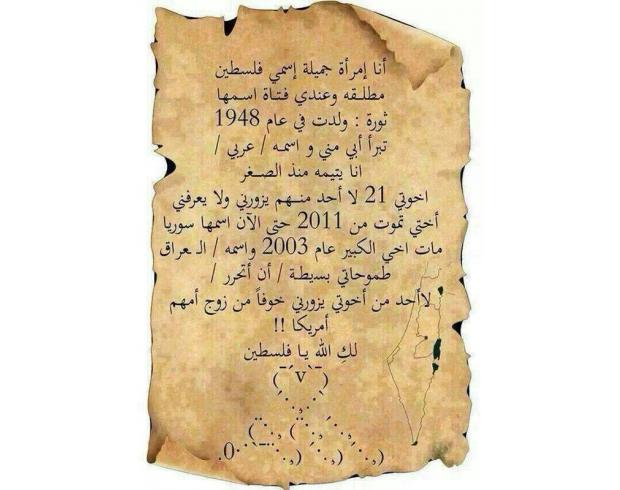 أنا إمرأة جميلة إسمي فلسطين
مطلـقه وعندي فتـاة اسـمها
ثورة : ولدت في عام 1948
تبرأ أبي مني و اسمـه / عربي /
انا يتيمه منذ الصـغر
اخوتي 21 لا أحد منـهم يزورني ولا يعرفني
أختي تموت من 2011 حتى الآن اسمها سوريا
مات اخي الكبير عام 2003 واسمه / الـعراق
طموحاتي بسيطـة / أن أتحرر /
لاأحد من أخوتي يزورني خوفاً من زوج أمهم
أمريكا !!
لكِ الله يـا فلسطين